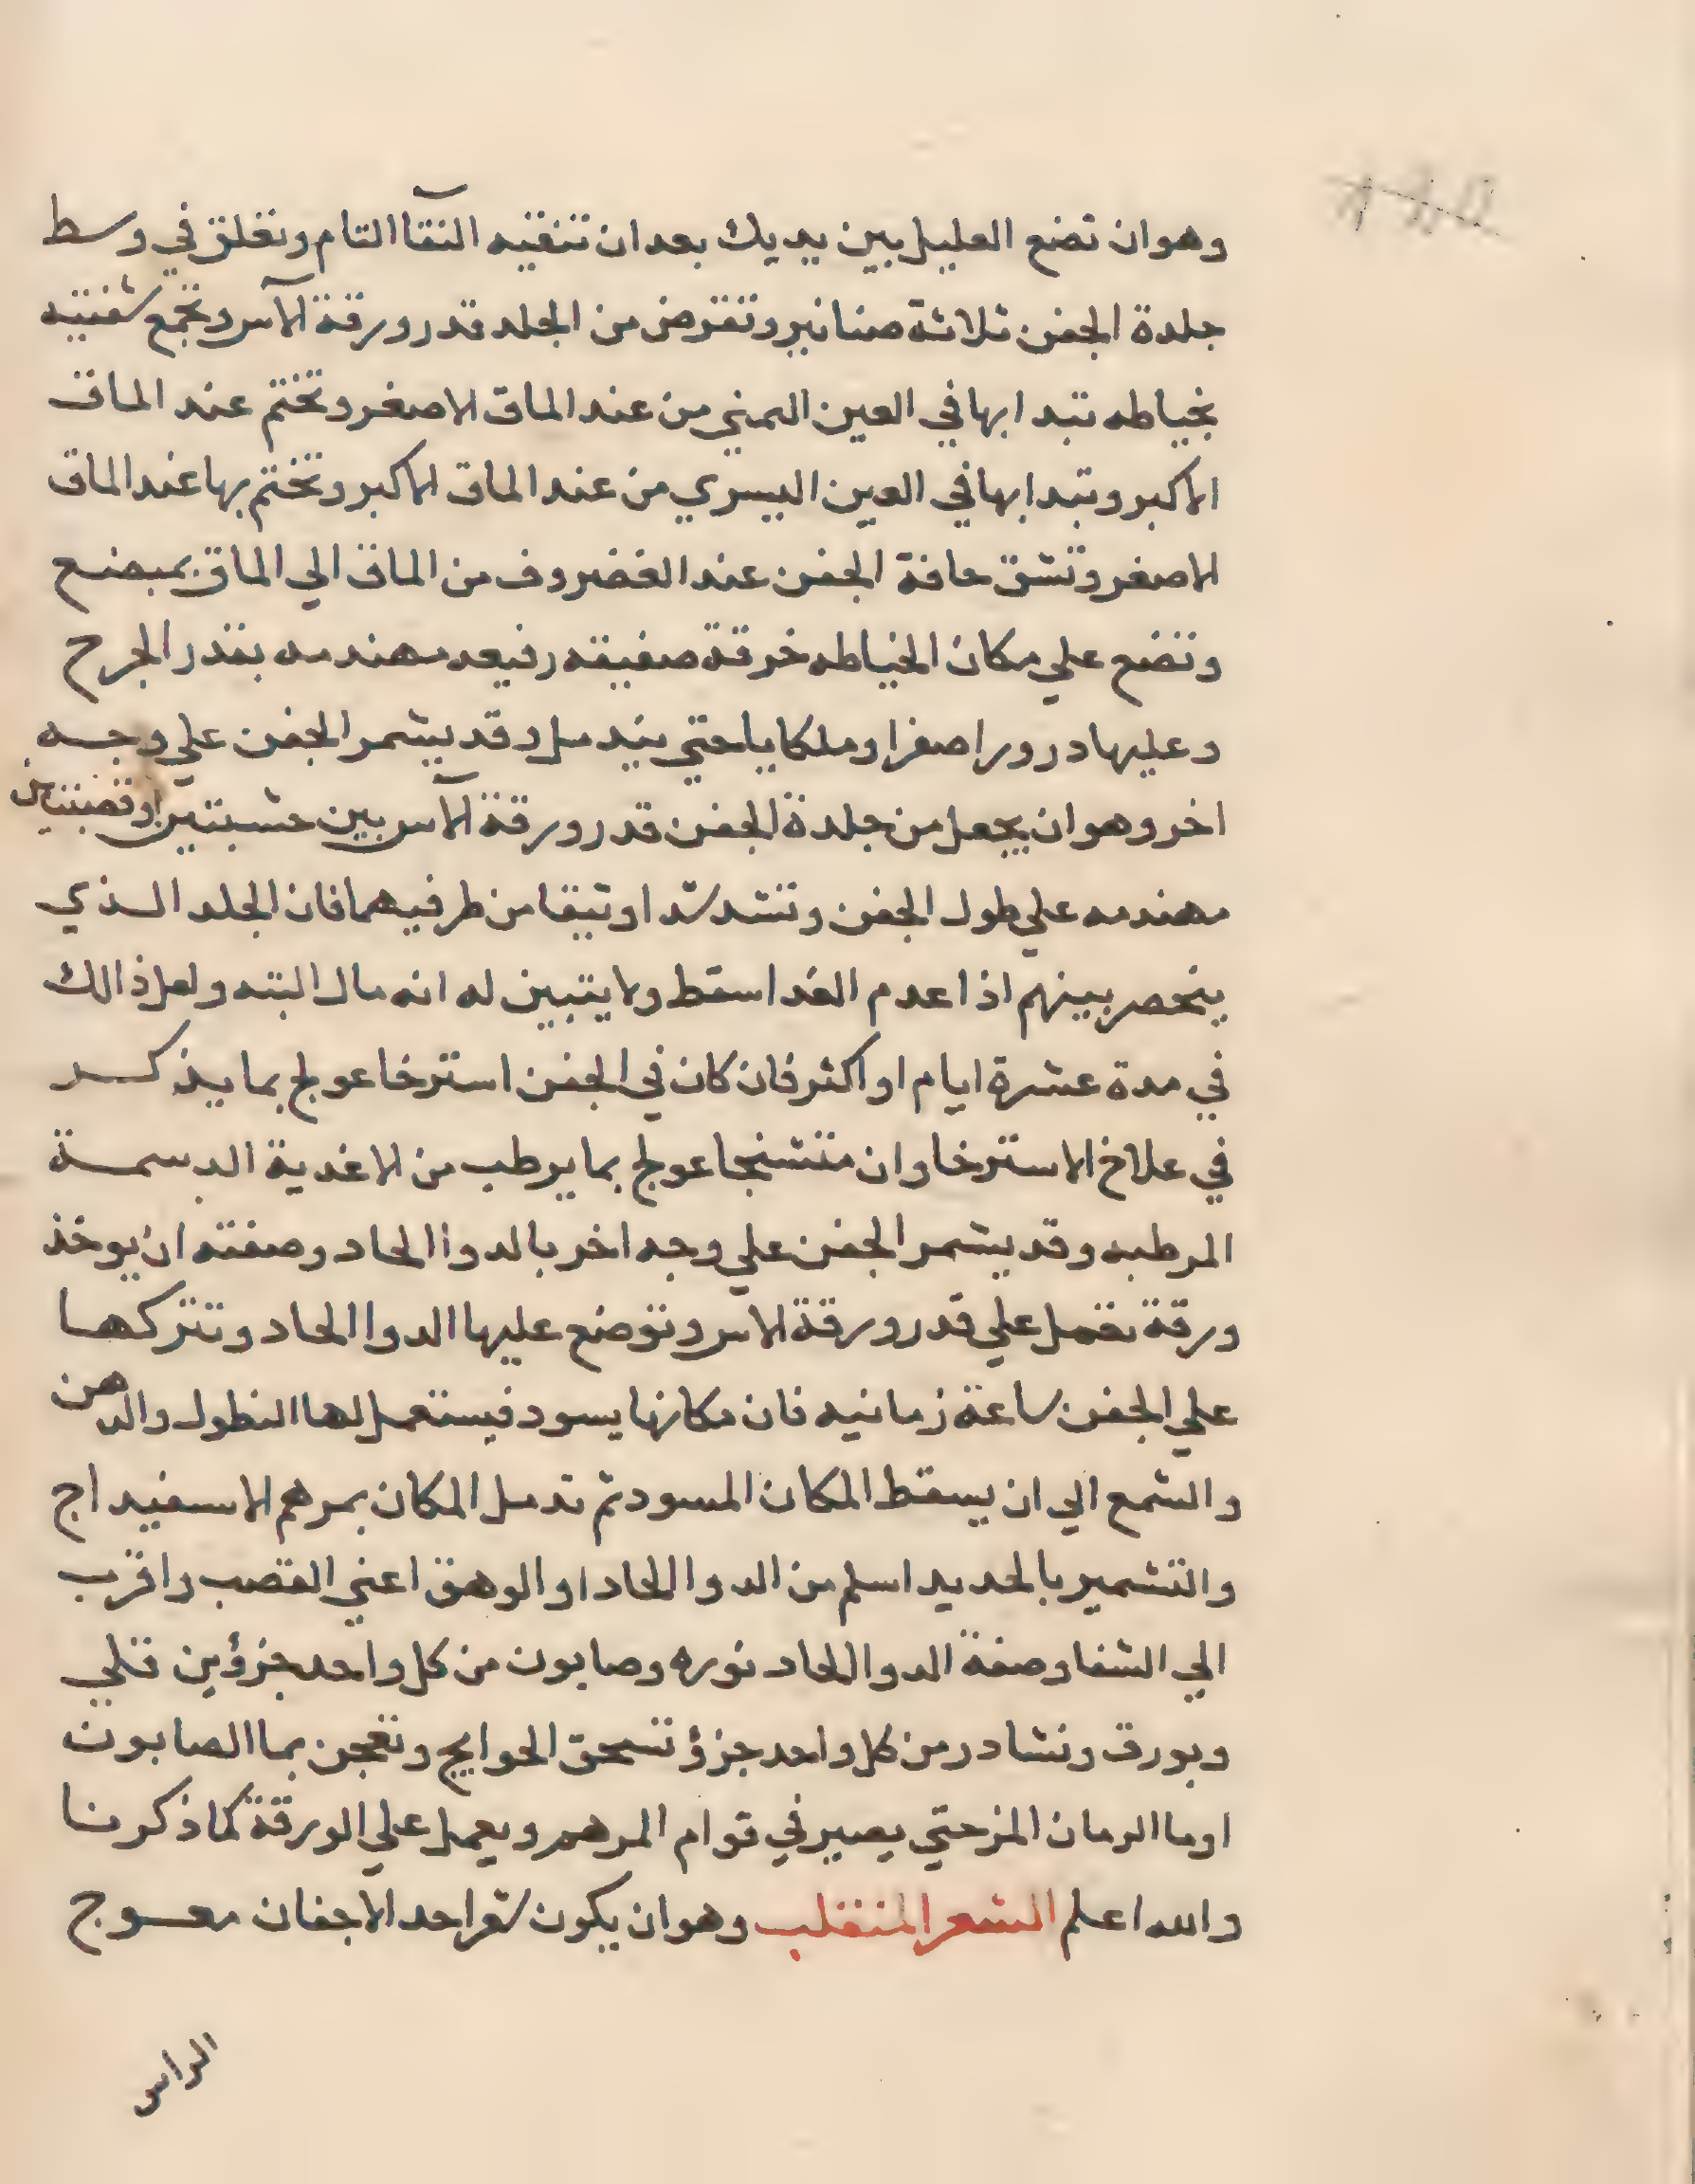 وهو ان تضع العليل بين يديك بعد ان تنقيه النقآ التام وتعلق في وسط
جلدة الجفن ثلاثة صنانير وتقرض من الجلد قدر ورقة الآس وتجمع شفتيه
بخياطه تبدا بها في العين اليمني من عند الماق الاصغر وتختم عند الماق
الاكبر وتبدا بها في العين اليسري من عند الماق الاكبر وتختم بها عند الماق
الاصغر وتشق حافة الجفن عند الغضروف من الماق الي الماق بمبضع
وتضع علي مكان الخياطه خرقة صفيقه رفيعه مهندمه بقدر الجرح
وعليها درورا اصفرا وملكايا حتي يندمل وقد يشمر الجفن علي وجه
اخر وهو ان يجعل من جلدة الجفن قدر ورقة الآس بين خشبتين او قصبتين
مهندمه علي طول الجفن وتشد شدا وثيقا من طرفيهما فان الجلد الذي
ينحصر بينهم اذا عدم الغدا سقط ولا يتبين له انه مال البته ولعل ذالك
في مدة عشرة ايام او اكثر فان كان في الجفن استرخا عولج بما يذكر
في علاج الاسترخا وان متشنجا عولج بما يرطب من الاغدية الدسمة
المرطبه وقد يشمر الجفن علي وجه اخر بالدوا الحاد وصفته ان يوخذ
ورقة تعمل علي قدر ورقة الاس وتوضع عليها الدوا الحاد وتتركها
علي الجفن ساعة زمانيه فان مكانها يسود فيستعمل لها النطول والدهن
والشمع الي ان يسقط المكان المسود ثم تدمل المكان بمرهم الاسفيداج
والتشمير بالحديد اسلم من الدوا الحاد او الوهق اعني القصب واقرب
الي الشفا وصفة الدوا الحاد نوره وصابون من كل واحد جزؤين قلي
وبورق ونشادر من كل واحد جزؤ تسحق الحوايج وتعجن بما الصابون
او ما الرمان المز حتي يصير في قوام المرهم ويعمل علي الورقة كما ذكرنا
والله اعلم الشعر المنقلب وهو ان يكون شعر احد الاجفان معوج
الراس